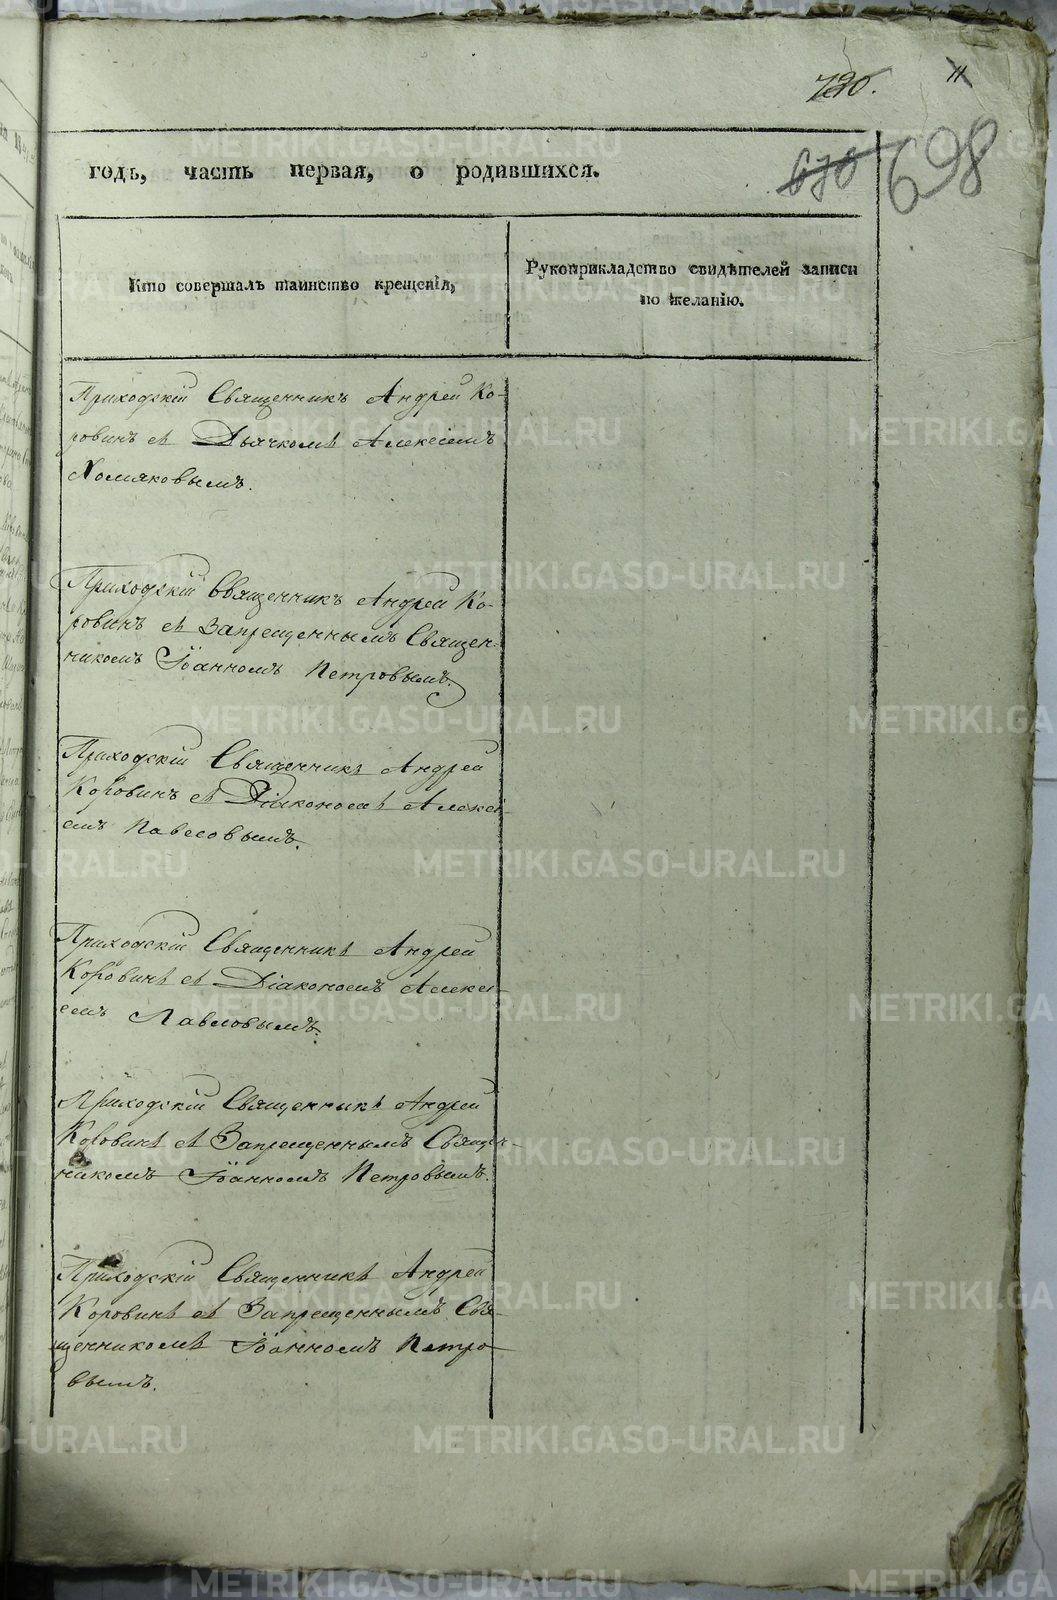 720. 11
670 698
годъ, часть первая, о родившихся.
Кто совершалъ таинство крещенія,
Рукоприкладство свидѣтелей записи
по желанію.
Приходскій Священникъ Андрей Ко-
ровинъ съ Дьячкомъ Алексіемъ
Хомяковымъ.
Приходскій Священникъ Андрей Ко-
ровинъ съ Запрещеннымъ Священ-
никомъ Іоанномъ Петровымъ.
Приходскій Священникъ Андрей
Коровинъ съ Діакономъ Алексі-
емъ Павловымъ.
Приходскій Священникъ Андрей
Коровинъ съ Діакономъ Алексі-
емъ Павловымъ.
Приходскій Священникъ Андрей
Коровинъ съ Запрещеннымъ Священ-
никомъ Іоанномъ Петровымъ.
Приходскій Священникъ Андрей
Коровинъ съ Запрещеннымъ Свя-
щенникомъ Іоанномъ Петро-
вымъ.
METRIKI.GASO-URAL.RU